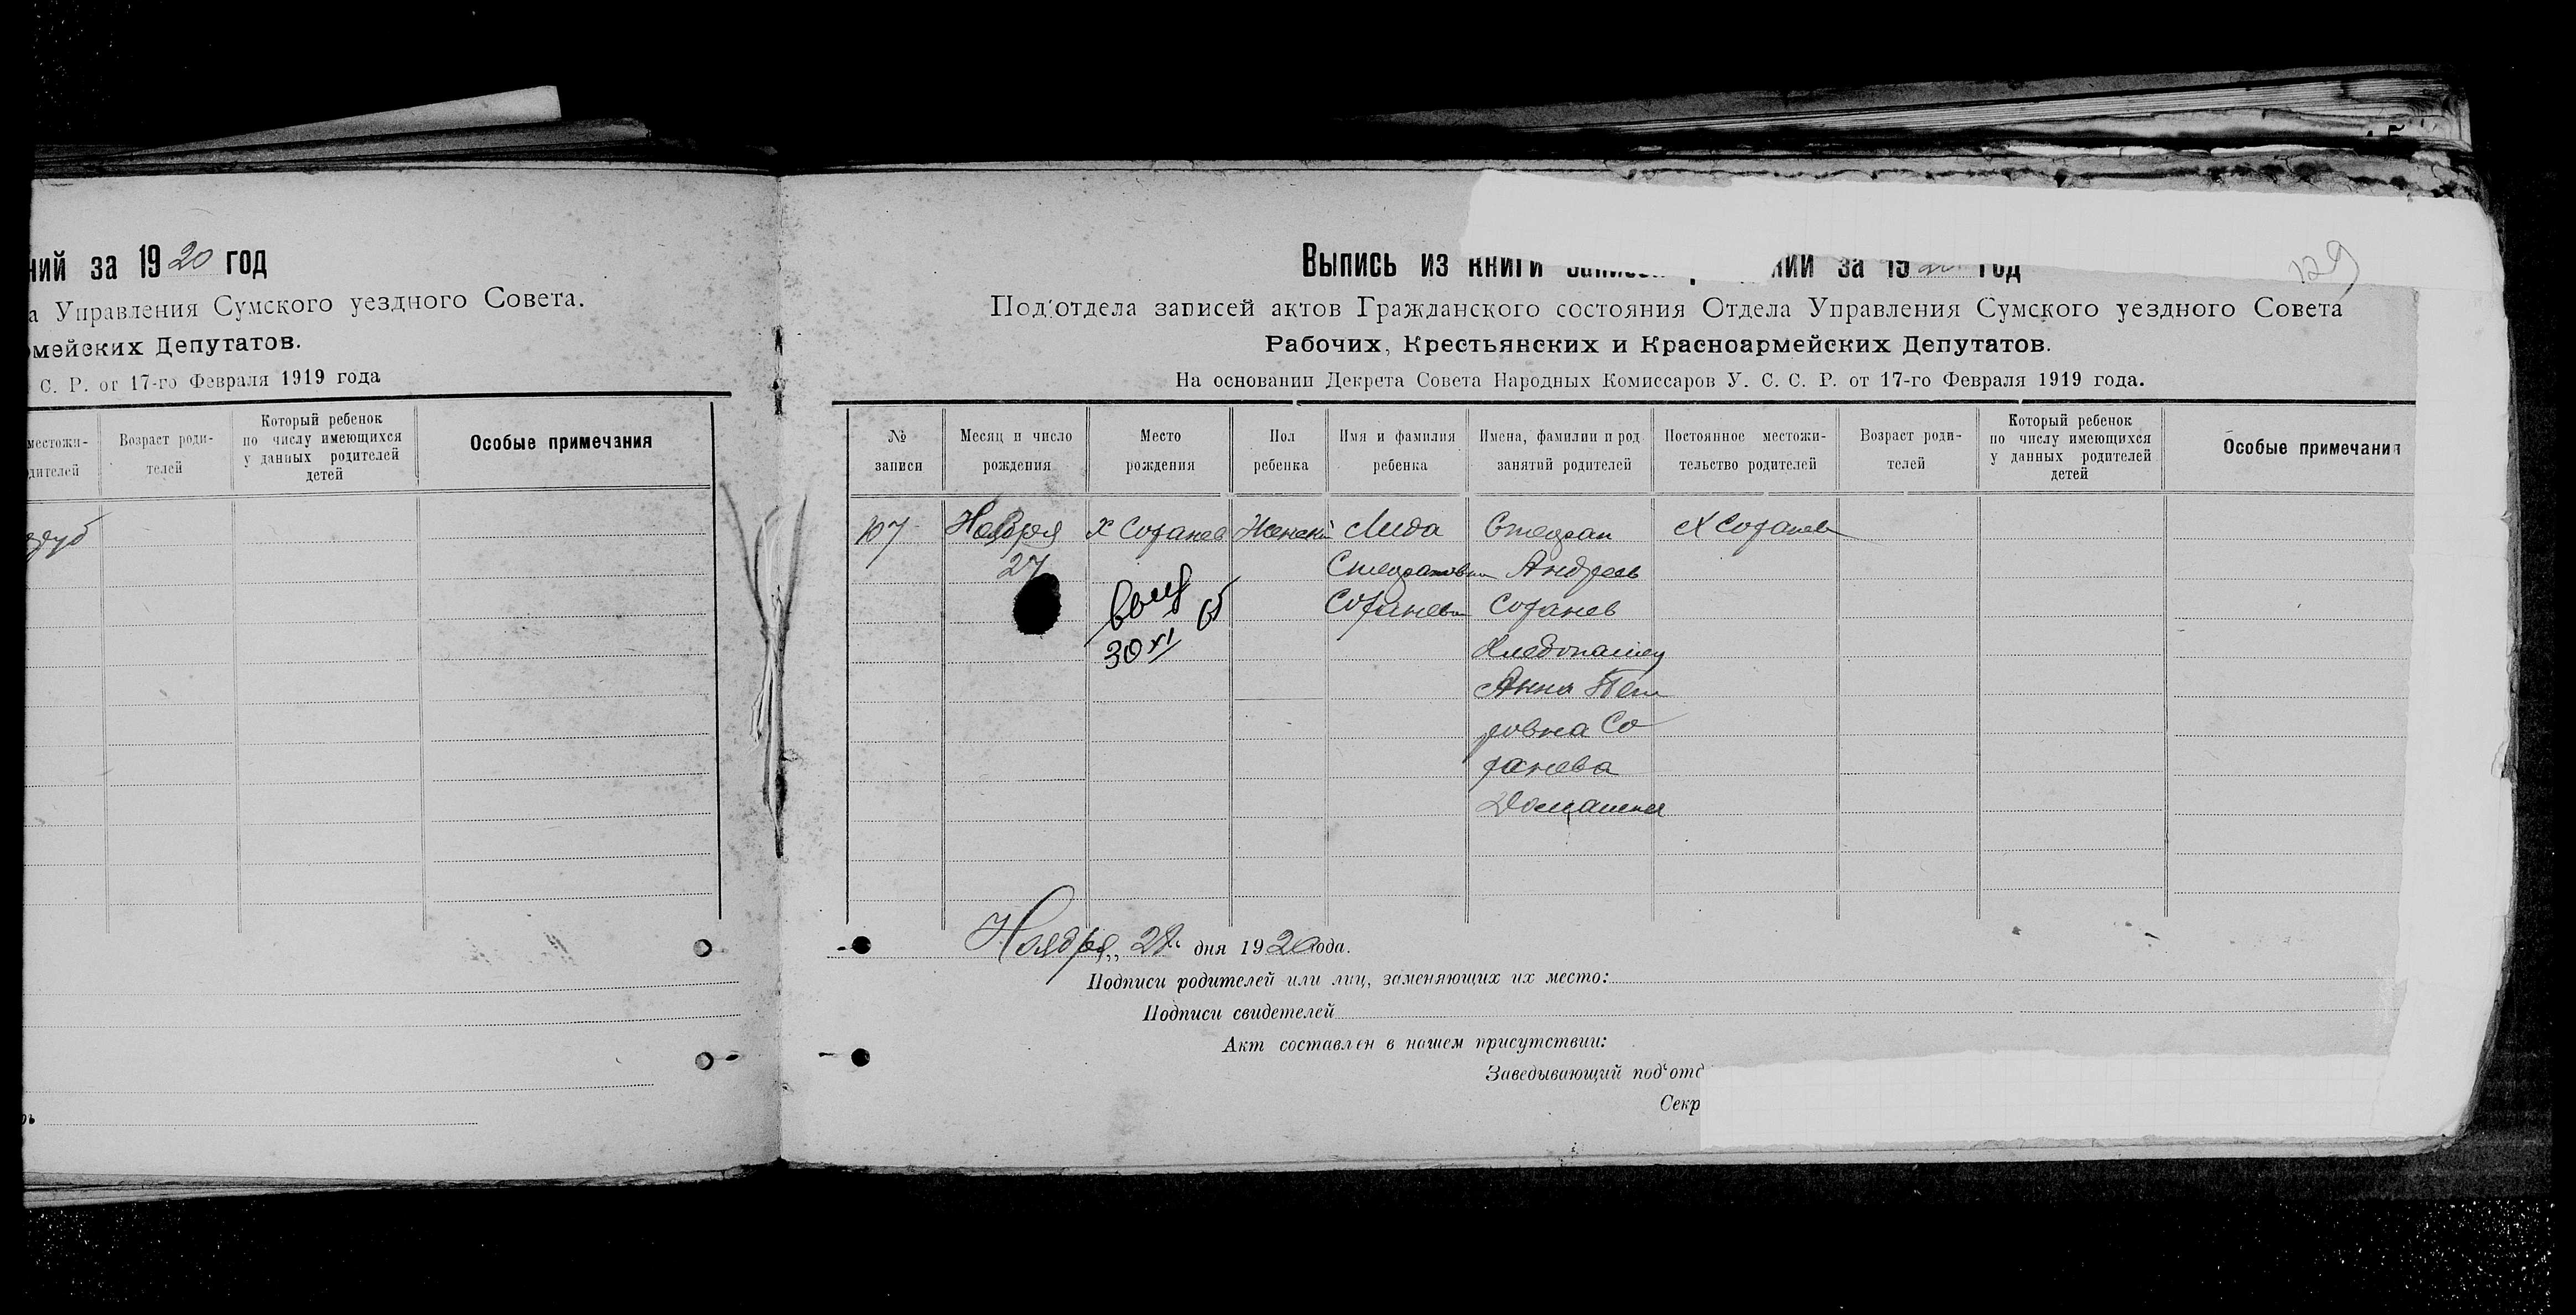 ний за 1920 год
а Управления Сумского уездного Совета.
рмейских Депутатов.
С. Р. от 17-го Февраля 1919 года
местожи-
дителей
Возраст роди-
телей
Который ребенок
по числу имеющихся
у данных родителей
детей
Особые примечания
Выпись из книги ний за 1920 год
129
Под'отдела записей актов Гражданского состояния Отдела Управления Сумского уездного Совета
Рабочих, Крестьянских и Красноармейских Депутатов.
На основании Декрета Совета Народных Комиссаров У. С. С. Р. от 17-го Февраля 1919 года.
№
записи
Месяц и число
рождения
Место
рождения
Пол
ребенка
Имя и фамилия
ребенка
Имена, фамилии и род
занятий родителей
Постоянное местожи-
тельство родителей
Возраст роди-
телей
Который ребенок
по числу имеющихся
у данных родителей
детей
Особые примечания
107
Ноября
27
Х
30 XI
Женск
Лида
Стефан
Андреев
Хлебопашец
Анна Пет
ровна Со
Домашня
Х
Ноября „ 28 „ дня 1920 года.
Подписи родителей или лиц, заменяющих их место:
Подписи свидетелей
Акт составлен в нашем присутствии:
Заведывающий под'отд
Секр